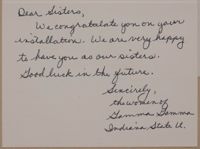 Dear Sisters,
We congratulate you on your
installation. We are very happy
to have you as our sisters.
Good luck in the future.
Sincerely,
the women of
Gamma Gamma
Indiana State U.